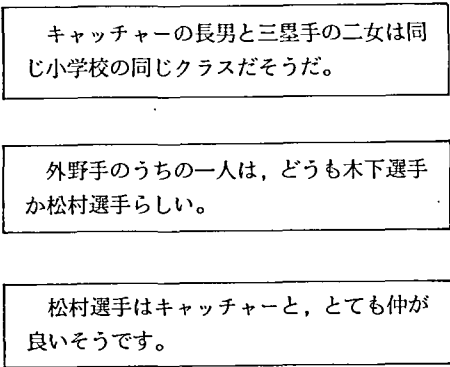 キャッチャーの長男と三塁手の二女は同
じ小学校の同じクラスだそうだ。
外野手のうちの一人は，どうも木下選手
か松村選手らしい。
松村選手はキャッチャーと，とても仲が
良いそうです。